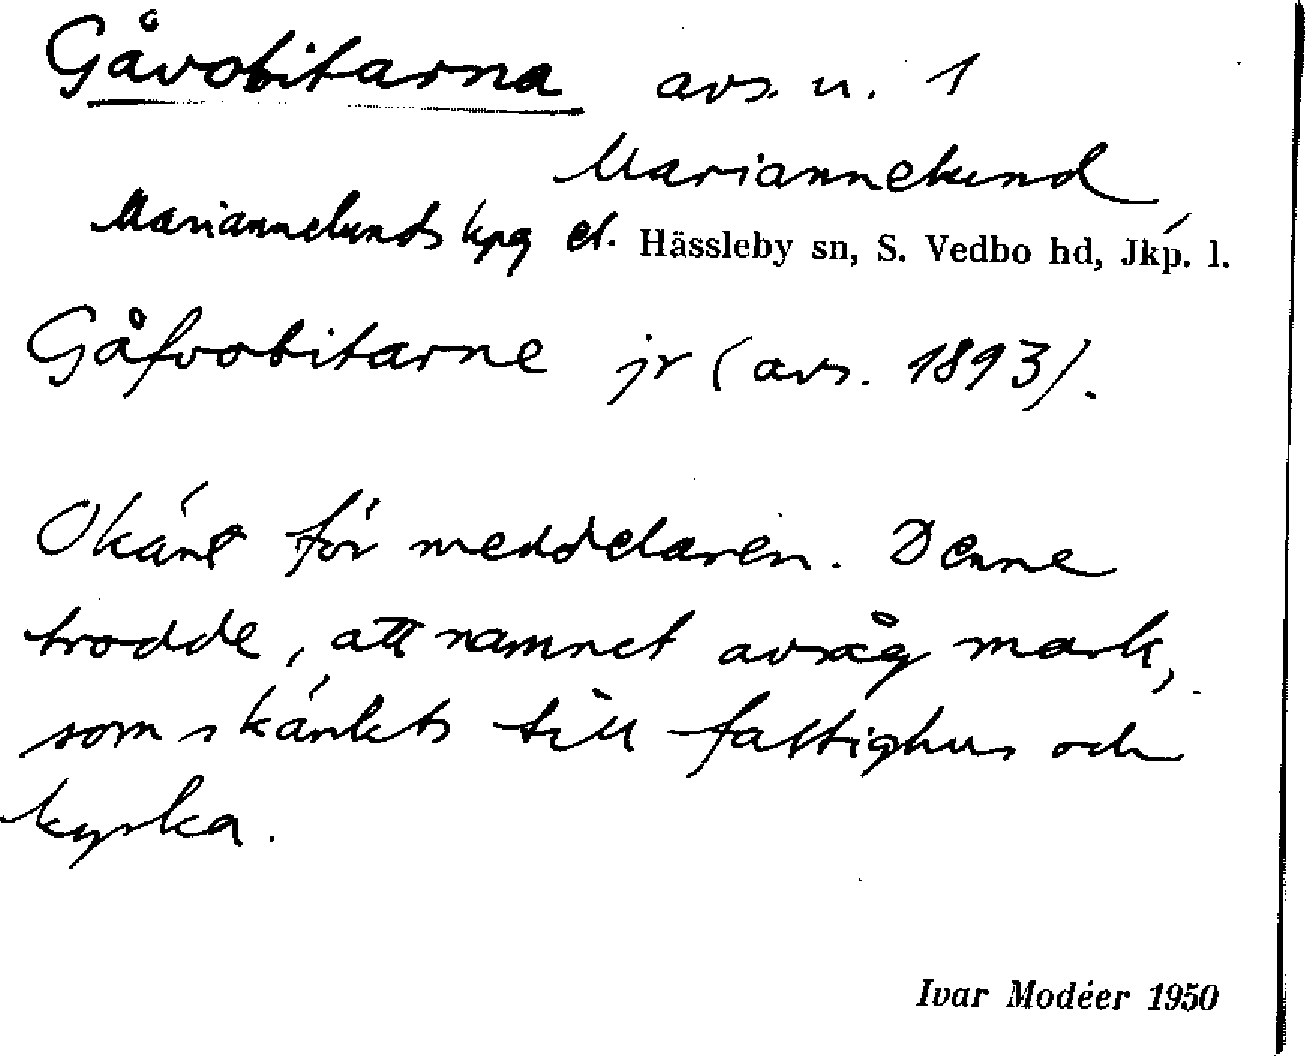 Gåvobitarna avs. u. 1
Mariannelund
Mariannelunds kpg el. Hässleby sn, S. Vedbo hd, Jkp. l.
Gåfvobitarne jr (avs. 1893).
Okänt för meddelaren. Denne
trodde, att namnet avsåg mark,
som skänkts till fattighus och
kyrka.
Ivar Modéer 1950